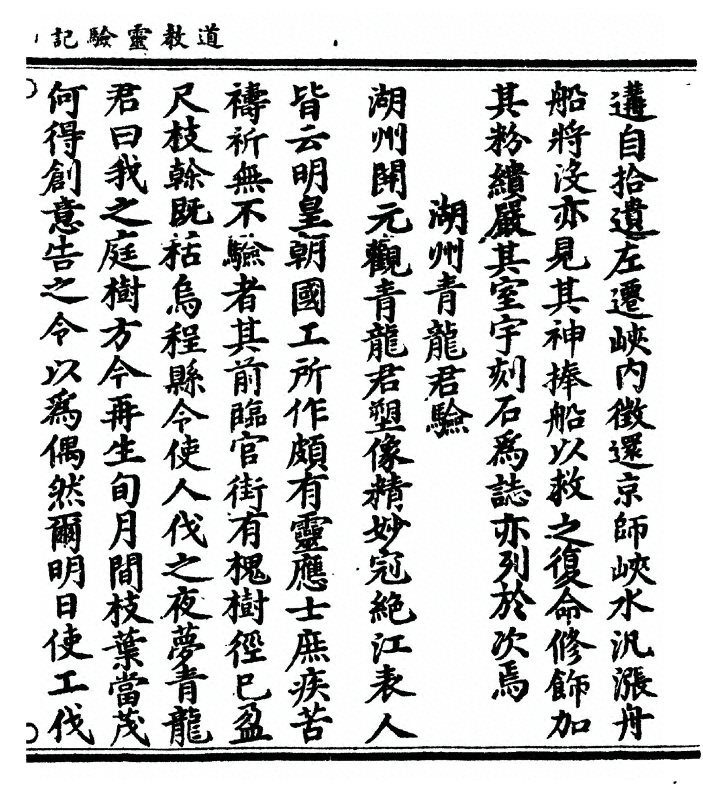 道教靈驗記
遘自拾遺左遷峽內徵還京師峽水汎漲舟
船將沒亦見其神捧船以救之復命修飾加
其粉繢嚴其室宇刻石爲誌亦列於次焉
湖州青龍君驗
湖州開元觀青龍君塑像精妙冠絶江表人
皆云明皇朝國工所作頗有靈應士庶疾苦
禱祈無不驗者其前臨官街有槐樹徑已盈
尺枝榦旣枯烏程縣令使人伐之夜夢青龍
君曰我之庭樹方今再生旬月間枝葉當茂
何得創意告之令以爲偶然爾明日使工伐